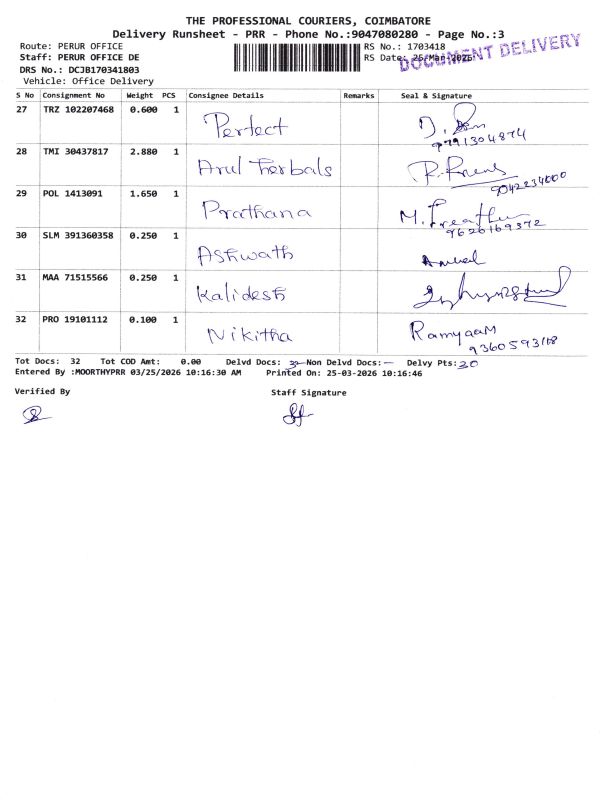 THE PROFESSIONAL COURIERS, COIMBATORE
Delivery Runsheet - PRR - Phone No.:9047080280 - Page No.:3
Route: PERUR OFFICE RS No.: 1703418
Staff: PERUR OFFICE DE RS Date: 25-Mar-2026
DOCUMENT DELIVERY
DRS No.: DCJB170341803
Vehicle: Office Delivery
S No Consignment No Weight PCS Consignee Details Remarks Seal & Signature
27 TRZ 102207468 0.600 1 Perfect
9791304874
28 TMI 30437817 2.880 1 Arul Herbals
9042234000
29 POL 1413091 1.650 1 Prathana
9626169372
30 SLM 391360358 0.250 1 Ashwath
31 MAA 71515566 0.250 1 Kalidesh
32 PRO 19101112 0.100 1 Nikitha RamyaaM
Tot Docs: 32 Tot COD Amt: 0.00 Delvd Docs: 32 Non Delvd Docs: — Delvy Pts: 30
Entered By :MOORTHYPRR 03/25/2026 10:16:30 AM Printed On: 25-03-2026 10:16:46
Verified By Staff Signature